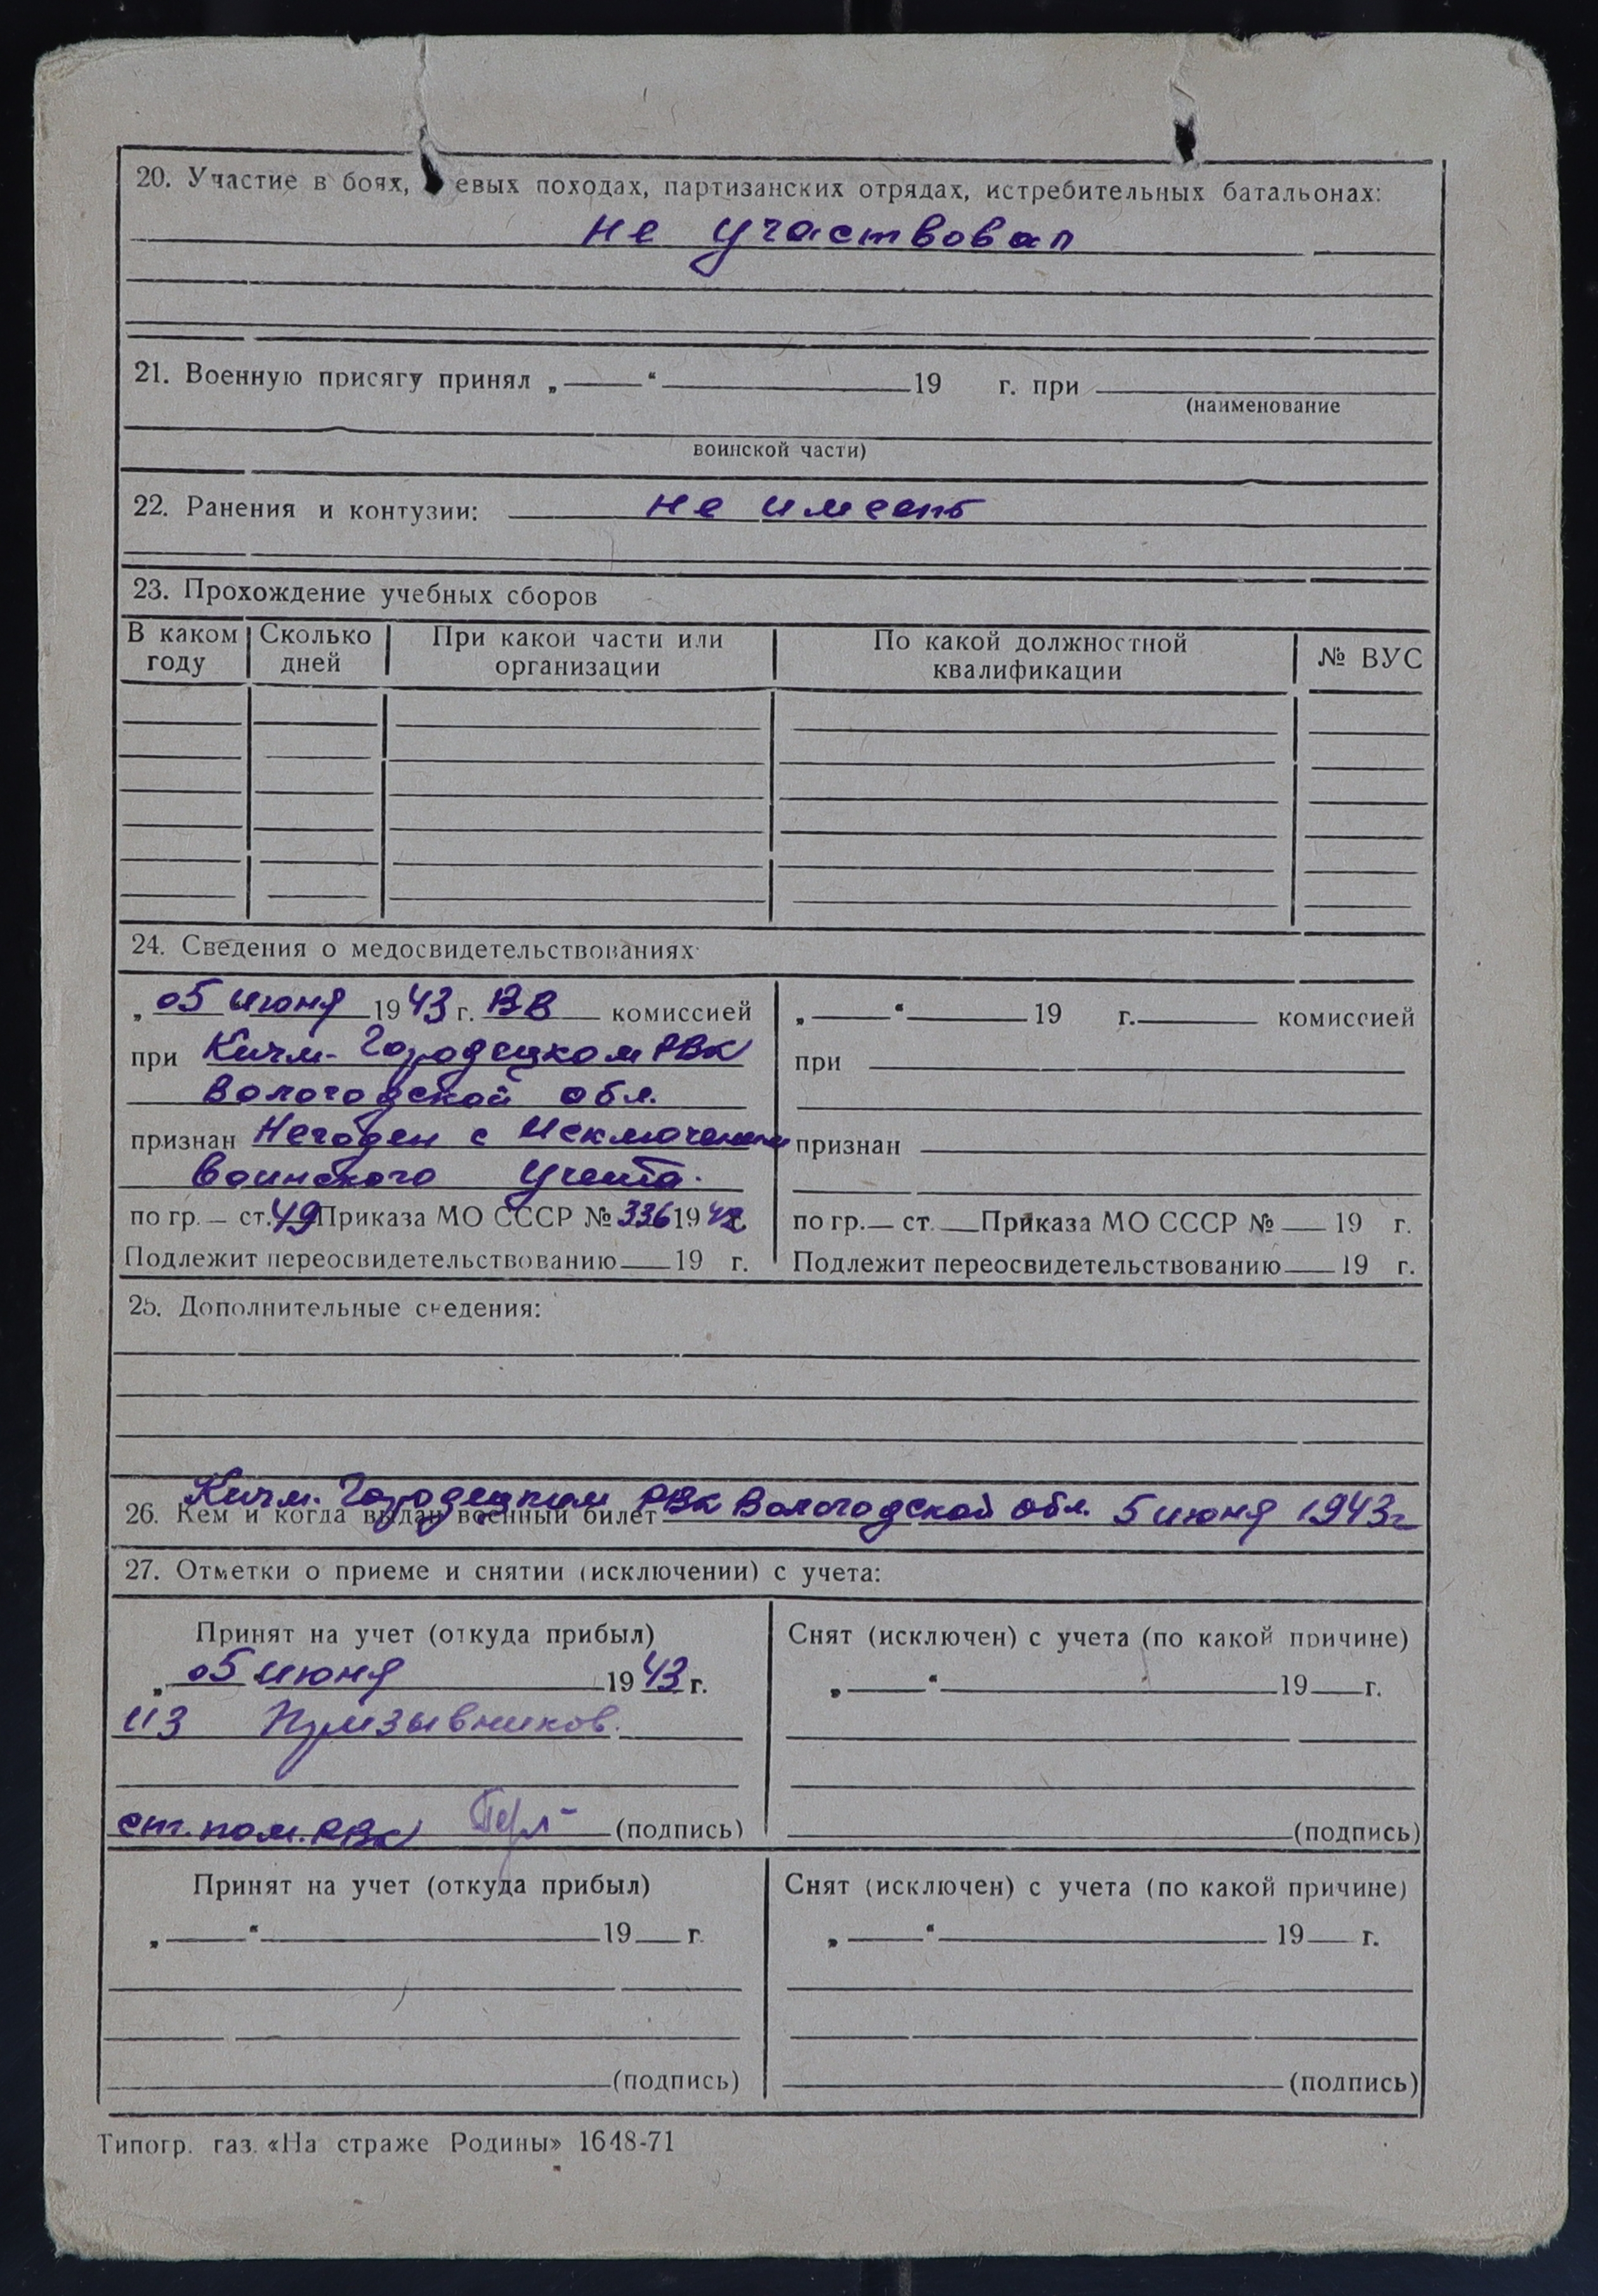 20. Участие в боях, евых походах, партизанских отрядах, истребительных батальонах:
не участвовал
21. Военную присягу принял „ “ 19 г. при
(наименование
воинской части)
22. Ранения и контузии: не имеет
23. Прохождение учебных сборов
В каком году Сколько дней При какой части или организации По какой должностной квалификации № ВУС
24. Сведения о медосвидетельствованиях
„ 05 июня 1943 г. ВВ комиссией
при Кичм-Городецком РВК
Вологодской обл.
признан Негоден с исключением
воинского учета.
по гр. — ст. 49 Приказа МО СССР № 336 1942
Подлежит переосвидетельствованию 19 г.
„ “ 19 г. комиссией
при
признан
по гр. — ст. Приказа МО СССР № 19 г.
Подлежит переосвидетельствованию 19 г.
25. Дополнительные сведения:
26. Кем и когда выдан военный билет Кичм. Городецким РВК Вологодской обл. 5 июня 1943г
27. Отметки о приеме и снятии (исключении) с учета:
Принят на учет (откуда прибыл)
„ 05 июня 1943 г.
из Призывников.
ст. пом. РВК (подпись)
Снят (исключен) с учета (по какой причине)
„ “ 19 г.
(подпись)
Принят на учет (откуда прибыл)
„ “ 19 г.
(подпись)
Снят (исключен) с учета (по какой причине)
„ “ 19 г.
(подпись)
Типогр. газ. «На страже Родины» 1648-71